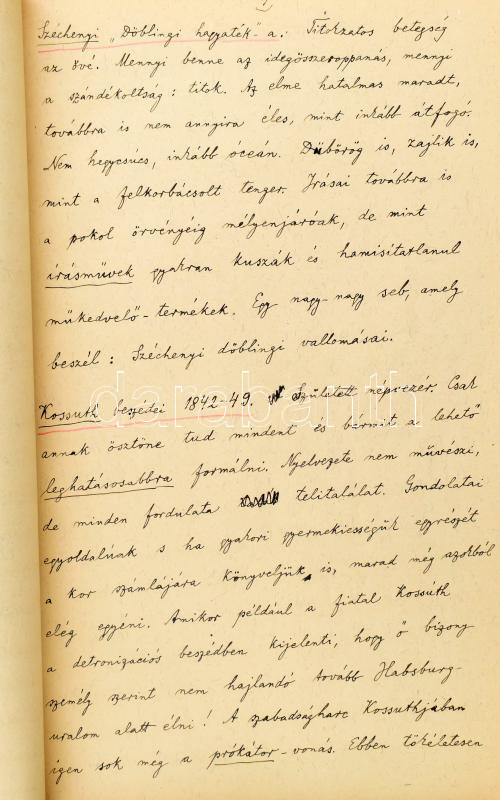 Széchenyi „Döblingi hagyaték"-a. Titokzatos betegség
az övé. Mennyi benne az idegösszeroppanás, mennyi
a szándékoltság: titok. Az elme hatalmas maradt,
továbbra is nem annyira éles, mint inkább átfogó.
Nem hegycsúcs, inkább óceán. Dübörög is, zajlik is,
mint a felkorbácsolt tenger. Irásai továbbra is
a pokol örvényéig mélyenjáróak, de mint
írásművek gyakran kuszák és hamisítatlanul
műkedvelő-termékek. Egy nagy-nagy seb, amely
beszél: Széchenyi döblingi vallomásai.
Kossuth beszédei 1842-49. Született népvezér. Csak
annak ösztöne tud mindent és bármit a lehető
leghatásosabbra formálni. Nyelvezete nem művészi,
de minden fordulata telitalálat. Gondolatai
egyoldalúak s ha gyakori gyermekiességük egyrészét
a kor számlájára könyveljük is, marad még azokból
elég egyéni. Amikor például a fiatal Kossuth
a detronizációs beszédben kijelenti, hogy ő bizony
személy szerint nem hajlandó tovább Habsburg-
uralom alatt élni! A szabadságharc Kossuthjában
igen sok még a prókátor-vonás. Ebben tökéletesen
darabanth